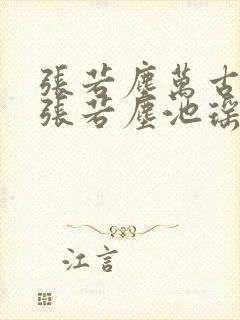 張若塵萬古
張若塵池瑤
江言